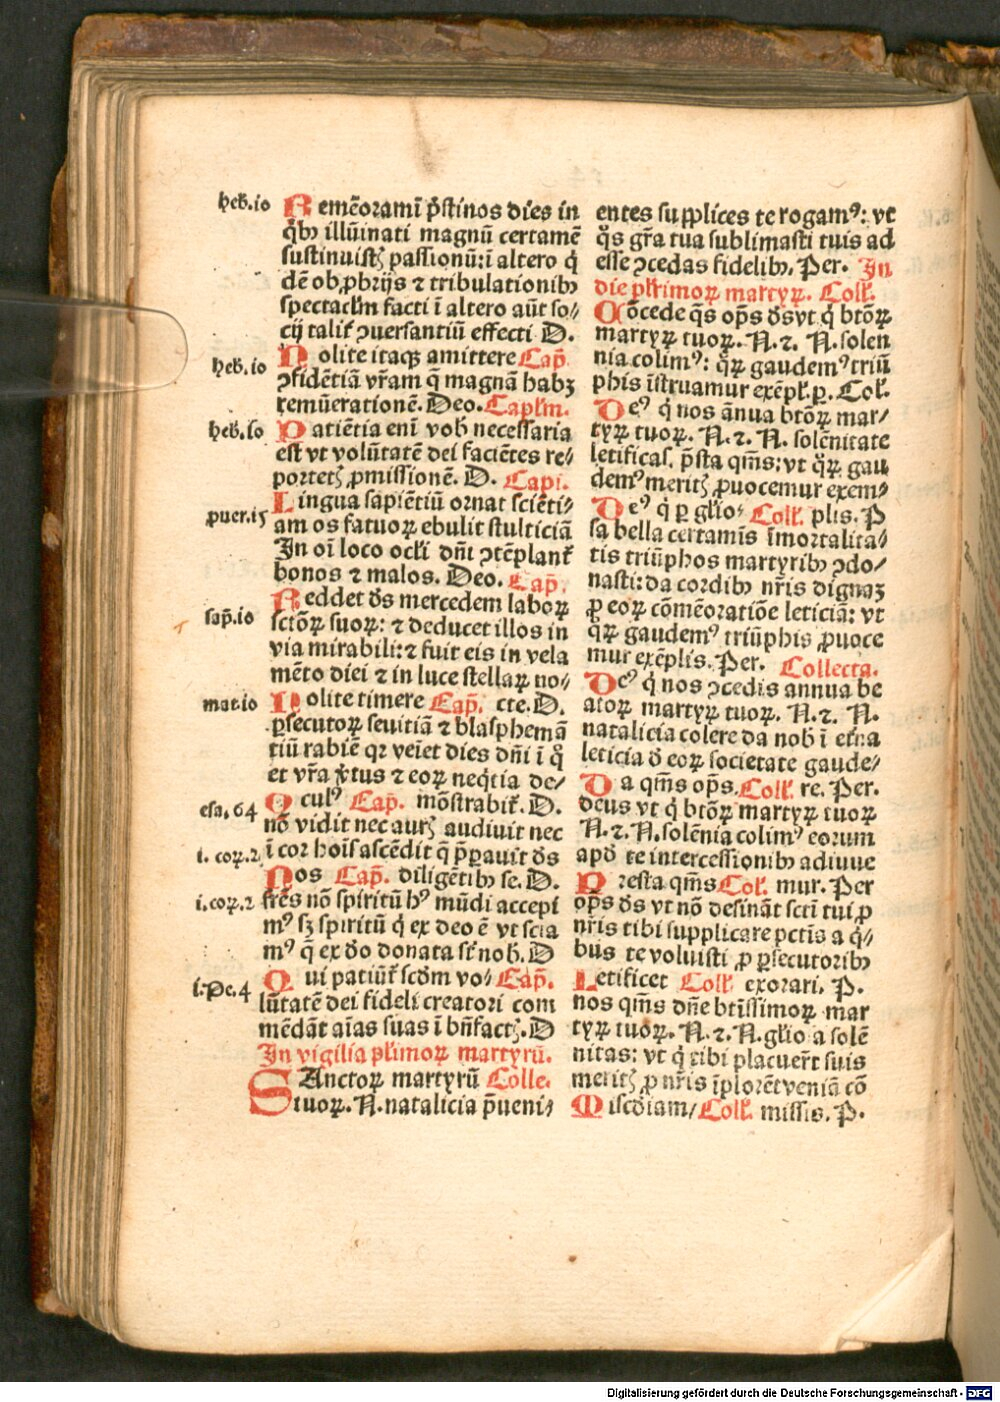 heb̄.io
Remēoramī p̄stinos dies in
qͥbꝰ illūinati magnū certamē
sustinuistꝭ passionū: ī altero qͥ
dē ob ꝓbrijs ⁊ tribulationibꝰ
spectacl̄m facti ī altero aūt so⸗
cij talit̄ ꝯuersantiū effecti D.
heb.io
Nolite itaqꝫ amittere Cap̄.
ꝯfidētiā vr̄am q̄ magnā habꝫ
remūerationē. Deo. Capl̄m.
heb̄.io
Patiētia eni vob̄ necessaria
est vt volūtatē dei faciētes re⸗
portetꝭ ꝓmissionē. D. Capi.
ꝓuer.i5
Lingua sapiētiū ornat sciēti⸗
am os fatuoꝝ ebulit stulticiā
In oī loco ocl̄i dn̄i ꝯtēplant̄
bonos ⁊ malos. Deo. Cap̄.
sap̄.io
Reddet ds̄ mercedem laboꝝ
sctōꝝ suoꝝ: ⁊ deducet illos in
via mirabili: ⁊ fuit eis in vela
mēto diei ⁊ in luce stellaꝝ no⸗
mat.io
Nolite timere Cap̄. cte. D.
ꝑsecutoꝝ seuitiā ⁊ blasphemā
tiū rabiē qꝛ veiet dies dn̄i ī qͦ
et vr̄a v̄tus ⁊ eoꝝ neqͥtia de⸗
esa.64
Oculꝰ Cap̄. mōstrabit̄. D.
nō vidit nec aurꝭ audiuit nec
i. coꝝ.2
ī cor hoīs ascēdit q̄ p̄parauit ds̄
Nos Cap̄. diligētibꝰ se. D.
i.coꝝ.2
frēs nō spiritū hꝰ mūdi accepi
mꝰ sꝫ spiritū qͥ ex deo ē vt scia
mꝰ q̄ ex do donata st̄ nob̄. D
i.Pe.4
Qui patiūt̄ scd̄m vo⸗ Cap̄.
lūtatē dei fideli creatori com
mēdāt aīas suas ī bn̄factꝭ. D
In vigilia pl̄imoꝝ martyrū.
SAnctoꝝ martyrū Colle.
tuoꝝ. N. natalicia p̄ueni⸗
entes supplices te rogamꝰ: vt
qͦs gr̄a tua sublimasti tuis ad
esse ꝯcedas fidelibꝰ. Per. In
die pl̄rimoꝝ martyꝝ. Coll̄.
Cōcede qs̄ op̄s ds̄ vt qͥ btōꝝ
martyꝝ tuoꝝ. N. ⁊. N. solen
nia colimꝰ: qͦꝝ gaudemꝰ triū
phis īstruamur exēpl̄. ꝑ. Col̄.
Deꝰ qͥ nos ānua btōꝝ mar⸗
tyꝝ tuoꝝ. N. ⁊. N. solēnitate
letificas. p̄sta qm̄s: vt qͦꝝ gau
demꝰ meritꝭ ꝓuocemur exem⸗
Deꝰ qͥ ꝑ glio⸗ Coll̄. plis. P
sa bella certamīs īmortalita⸗
tis triūphos martyribꝰ ꝯdo⸗
nasti: da cordibꝰ nr̄is dignaꝫ
ꝓ eoꝝ cōmēoratiōe leticiā: vt
qͦꝝ gaudemꝰ triūphis ꝓuoce
mur exēplis. Per. Collecta.
Deꝰ qͥ nos ꝯcedis annua be
atoꝝ martyꝝ tuoꝝ. N. ⁊. N.
natalicia colere da nob̄ ī etn̄a
leticia d̄ eoꝝ societate gaude⸗
Da qm̄s op̄s. Coll̄. re. Per.
deus vt qͥ btōꝝ martyꝝ tuoꝝ
N. ⁊. N. solēnia colimꝰ eorum
apd̄ te intercessionibꝰ adiuue
Presta qm̄s Col̄. mur. Per
op̄s ds̄ vt nō desināt sctī tui ꝓ
nr̄is tibi supplicare pctīs a qͥ⸗
bus te voluisti ꝓ ꝑsecutoribꝰ
Letificet Coll̄ exorari. P.
nos qm̄s dn̄e btīssimoꝝ mar
tyꝝ tuoꝝ. N. ⁊. N. gl̄io a solē
nitas: vt qͥ tibi placuer̄t suis
meritꝭ ꝓ nr̄is īplorēt veniā cō
Miscd̄iam/ Coll̄. missis. P.
Digitalisierung gefördert durch die Deutsche Forschungsgemeinschaft - DFG